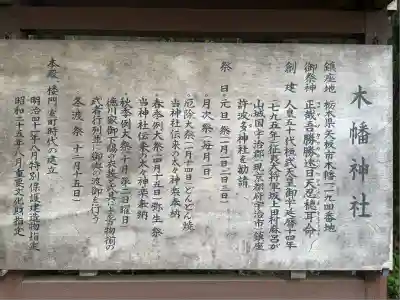 木幡神社
鎮座地 栃木県矢板市木幡一一九四番地
御祭神 正哉吾勝勝速日天忍穂耳命
創建 人皇五十代桓武天皇御宇延暦十四年
(七九五年)征夷大将軍坂上田村麻呂が
山城国宇治郡(現京都府宇治市)鎮座
許波多神社を勧請
祭日 ○元旦祭(一月一日二日三日)
○月次祭(毎月一日)
○厄除大祭(一月十四日)どんど焼
当神社伝来の太々神楽奉納
○春季例大祭(四月十五日)弥生祭
当神社伝来の太々神楽奉納
○秋季例大祭(十月第三日曜日)
徳川家御下賜の
武者行列並に御神輿の渡御を行う
冬渡祭(十二月十五日)
本殿、楼門 室町時代の建立
明治四十一年八月特別保護建造物指定
昭和二十五年八月重要文化財指定